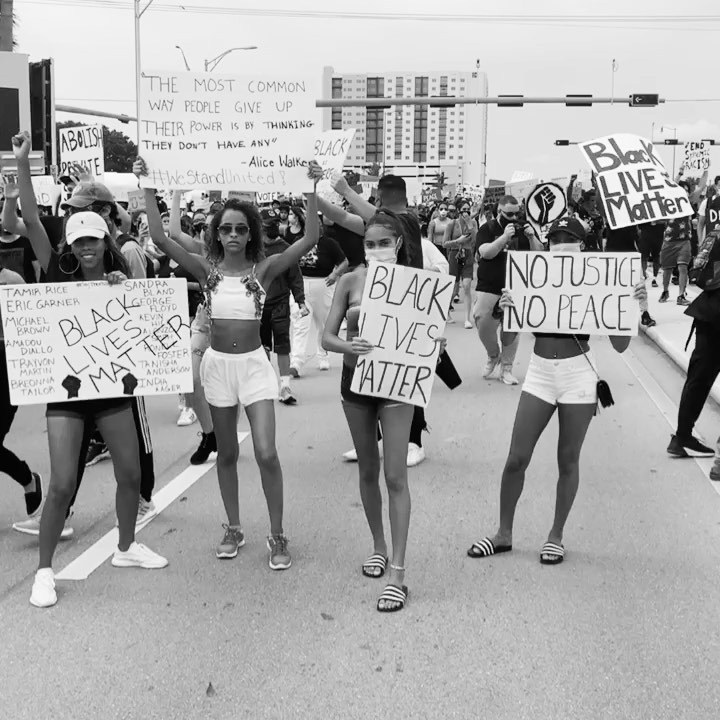 THE MOST COMMON
WAY PEOPLE GIVE UP
THEIR POWER IS BY THINKING
THEY DON'T HAVE ANY"
- Alice Walker
#WeStandUnited!
ABOLISH
BLACK
Black
LIVES
Matter
END
RACISM
TAMIR RICE
ERIC GARNER
MICHAEL
BROWN
AMADOU
DIALLO
TRAYVON
MARTIN
BREONNA
TAILOR
BLACK
LIVES
MATTER
SANDRA
BLAND
GEORGE
FLOYD
KEVIN
FOSTER
TANISHA
ANDERSON
INDIA
KAGER
BLACK
LIVES
MATTER
NO JUSTICE
NO PEACE